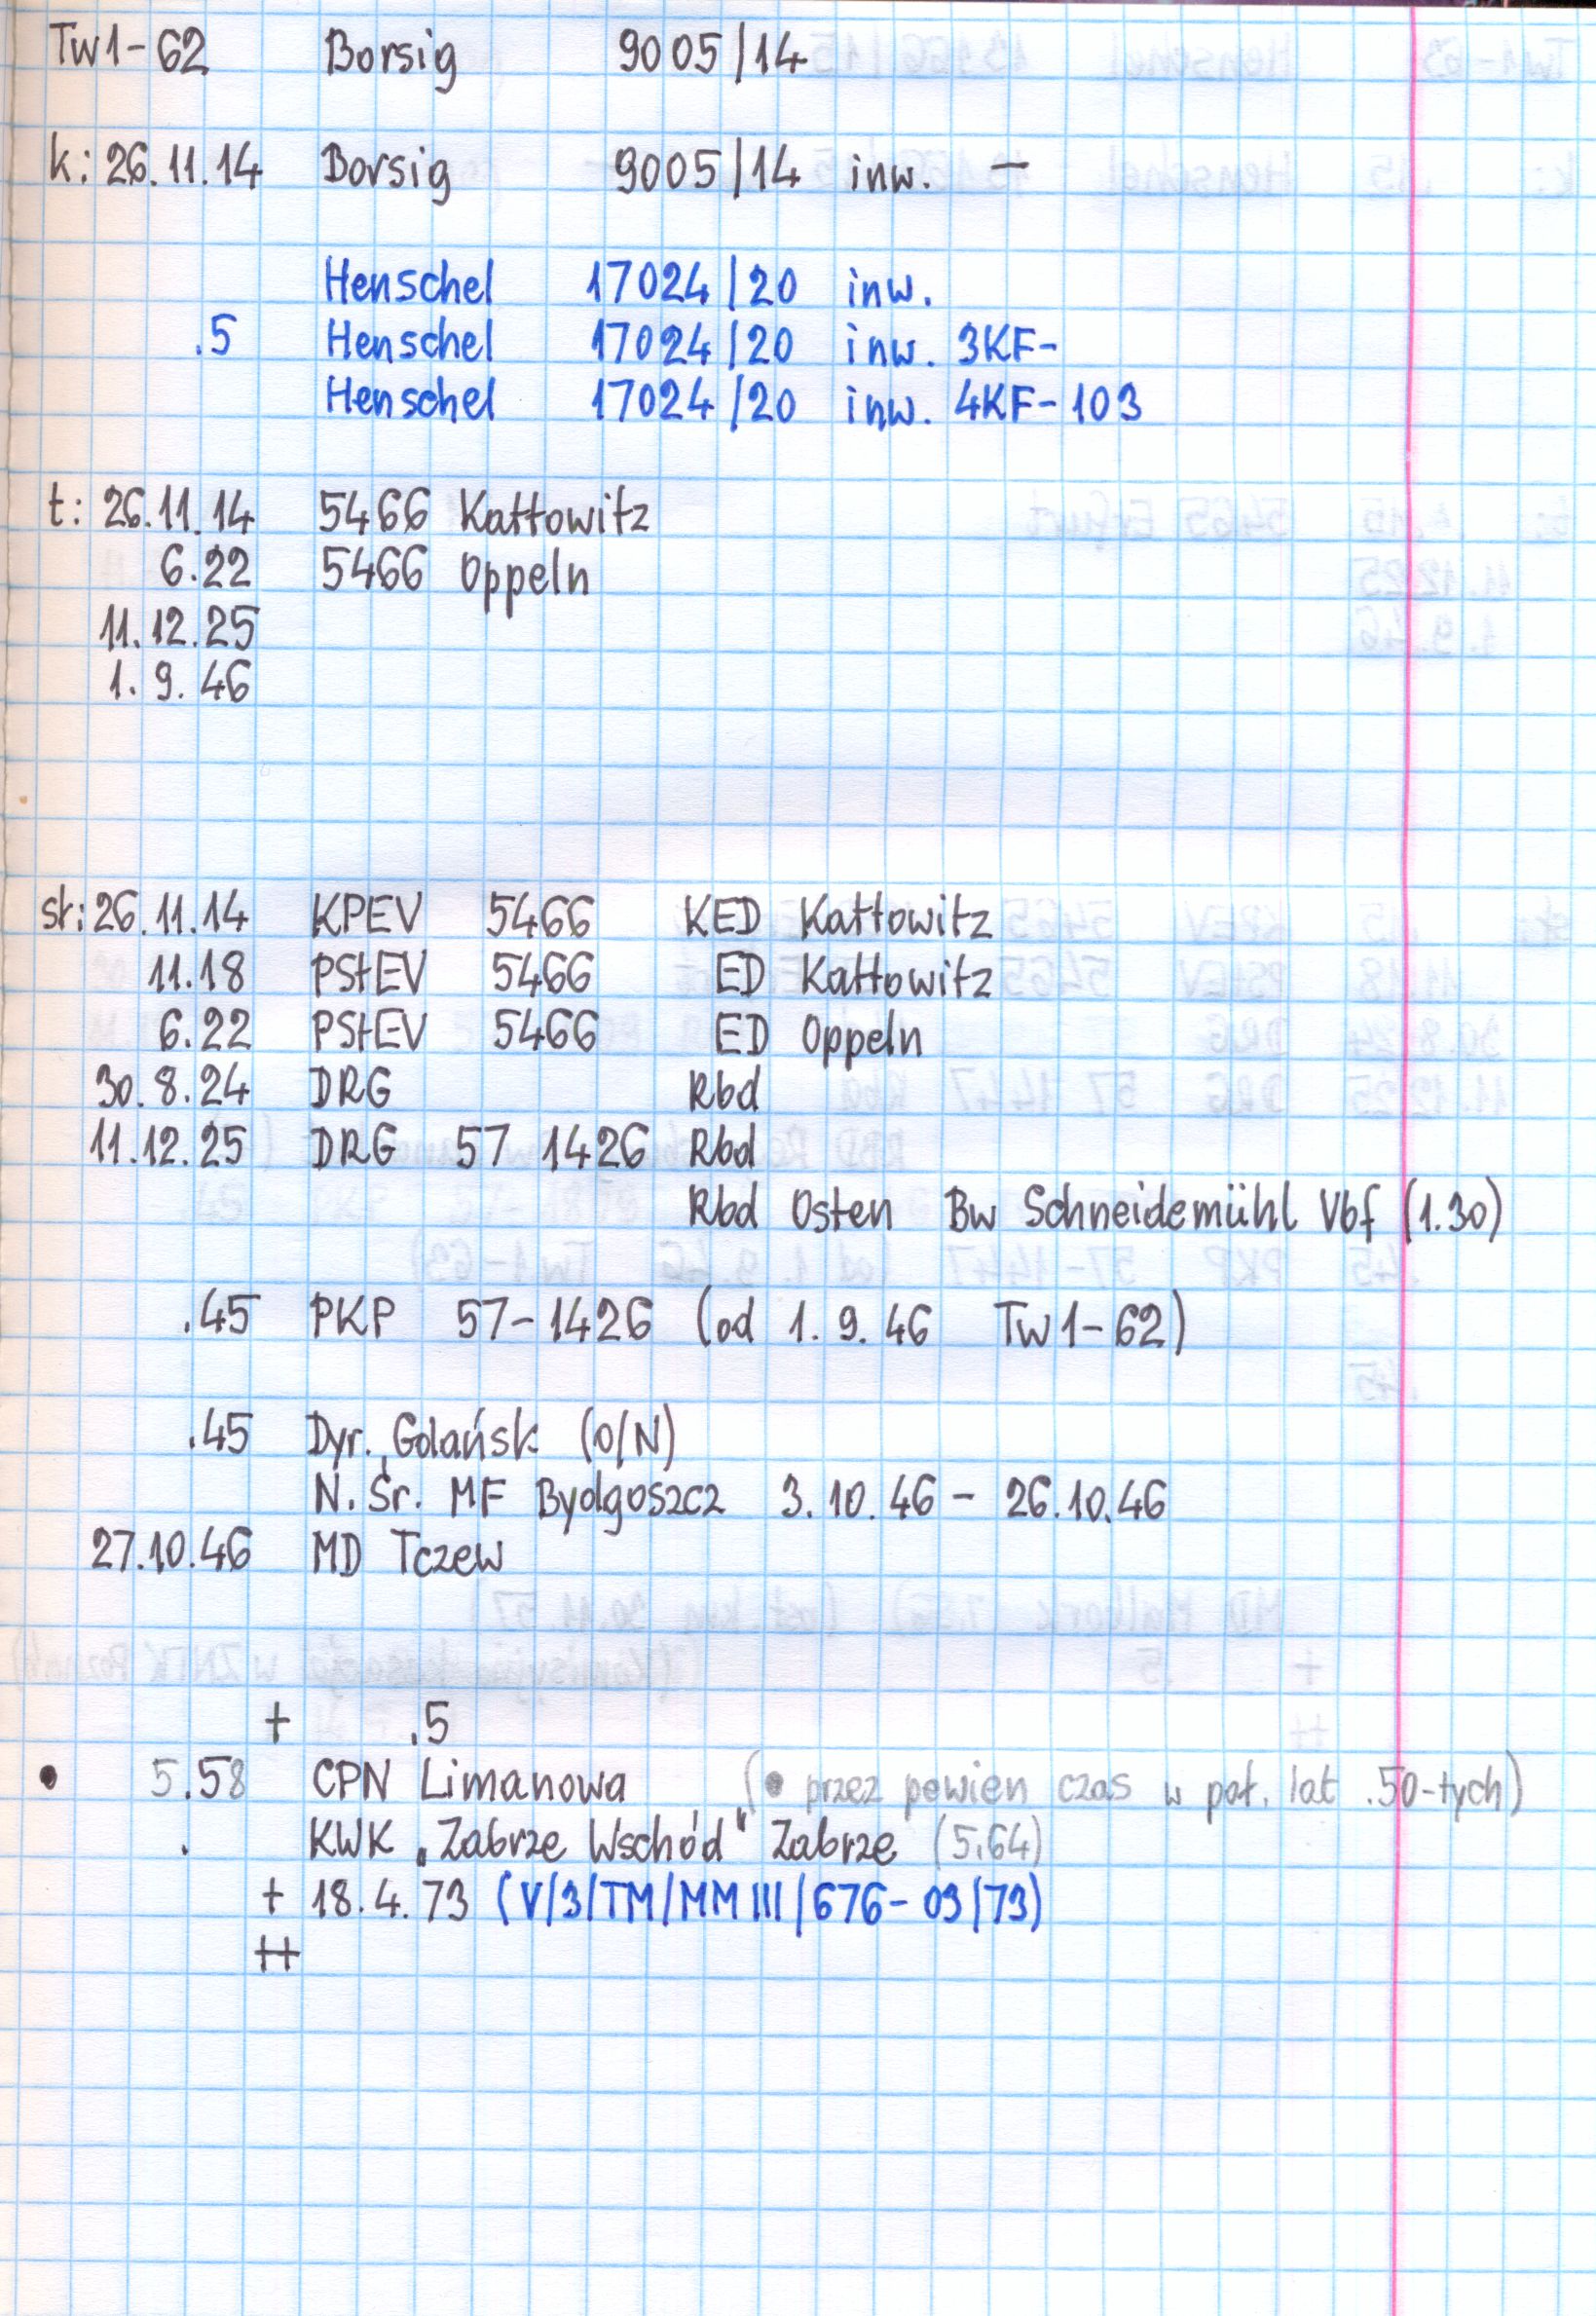 Tw1-62 Borsig 9005/14
k: 26.11.14 Borsig 9005/14 inw. –
Henschel 17024/20 inw.
.5 Henschel 17024/20 inw. 3KF-
Henschel 17024/20 inw. 4KF-103
t: 26.11.14 5466 Kattowitz
6.22 5466 Oppeln
11.12.25
1.9.46
st: 26.11.14 KPEV 5466 KED Kattowitz
11.18 PStEV 5466 ED Kattowitz
6.22 PStEV 5466 ED Oppeln
30.8.24 DRG Rbd
11.12.25 DRG 57 1426 Rbd
Rbd Osten Bw Schneidemühl Vbf (1.30)
.45 PKP 57-1426 (od 1.9.46 Tw1-62)
.45 Dyr. Gdańsk (O/N)
N. Śr. MF Bydgoszcz 3.10.46 - 26.10.46
27.10.46 MD Tczew
+ .5
• 5.58 CPN Limanowa (• przez pewien czas w poł. lat .50-tych)
. KWK „Zabrze Wschód" Zabrze (5.64)
+ 18.4.73 (V/3/TM/MM III/676-03/73)
++